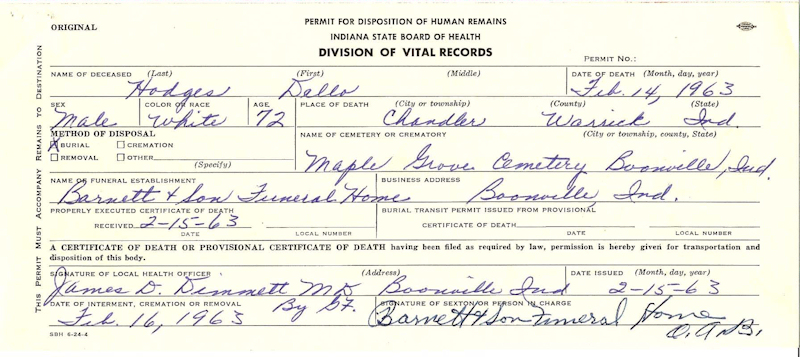 ORIGINAL
PERMIT FOR DISPOSITION OF HUMAN REMAINS
INDIANA STATE BOARD OF HEALTH
DIVISION OF VITAL RECORDS
PERMIT NO.:
THIS PERMIT MUST ACCOMPANY REMAINS TO DESTINATION
NAME OF DECEASED (Last) (First) (Middle) DATE OF DEATH (Month, day, year)
Hodges Dallo Feb. 14, 1963
SEX COLOR OR RACE AGE PLACE OF DEATH (City or township) (County) (State)
Male White 72 Chandler Warrick Ind.
METHOD OF DISPOSAL NAME OF CEMETERY OR CREMATORY (City or township, county, State)
X BURIAL CREMATION
REMOVAL OTHER (Specify) Maple Grove Cemetery Boonville, Ind.
NAME OF FUNERAL ESTABLISHMENT BUSINESS ADDRESS
Barnett & Son Funeral Home Boonville, Ind.
PROPERLY EXECUTED CERTIFICATE OF DEATH BURIAL TRANSIT PERMIT ISSUED FROM PROVISIONAL
RECEIVED 2-15-63 CERTIFICATE OF DEATH
DATE LOCAL NUMBER DATE LOCAL NUMBER
A CERTIFICATE OF DEATH OR PROVISIONAL CERTIFICATE OF DEATH having been filed as required by law, permission is hereby given for transportation and
disposition of this body.
SIGNATURE OF LOCAL HEALTH OFFICER (Address) DATE ISSUED (Month, day, year)
James D. Dimmett M.D. Boonville Ind 2-15-63
DATE OF INTERMENT, CREMATION OR REMOVAL By GF. SIGNATURE OF SEXTON/PERSON IN CHARGE
Feb. 16, 1963 Barnett & Son Funeral Home
SBH 6-24-4